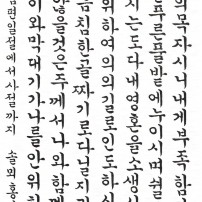 의목자시니내게부족함
푸른풀밭에누이시며쉴
시는도다내영혼을소생시
위하여의의길로인도하시
음침한골짜기로다닐지
않을것은주께서나와함께
이와막대기가나를안위하
삼편일절에서사절까지 솔뫼홍